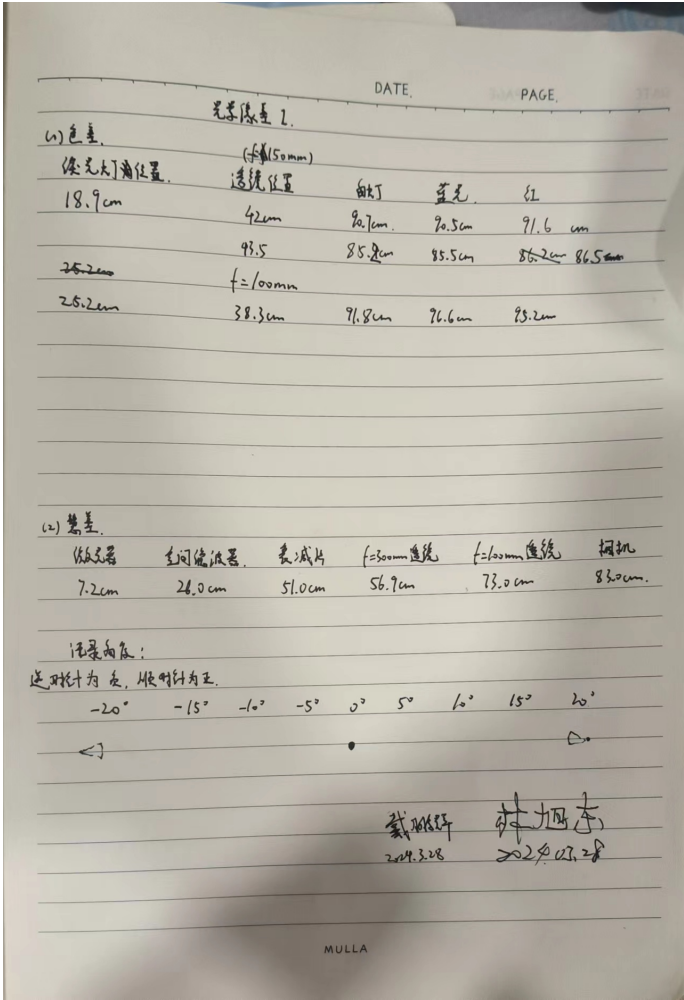 DATE.
PAGE.
光学像差 1.
(1) 色差. (f=150mm)
位置. 透镜位置 白灯 蓝光. 红
18.9cm 42cm 90.7cm. 90.5cm 91.6 cm
43.5 85.8cm 85.5cm 86.2cm 86.5cm
25.2cm f=100mm
25.2cm 38.3cm 91.8cm 96.6cm 95.2cm
(2) 慧差.
激光器 空间滤波器. 衰减片 f=300mm透镜 f=100mm透镜 相机
7.2cm 26.0cm 51.0cm 56.9cm 73.0cm 83.0cm.
记录角度:
逆时针为负, 顺时针为正.
-20° -15° -10° -5° 0° 5° 10° 15° 20°
2024.3.28 2024.03.28
MULLA